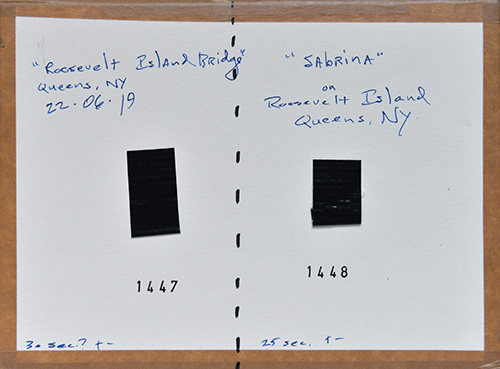 "Roosevelt Island Bridge"
Queens, NY
22.06.19
1447
30 sec.? +-
"SAbrinA"
on
Roosevelt Island
Queens, NY.
1448
25 sec. +-